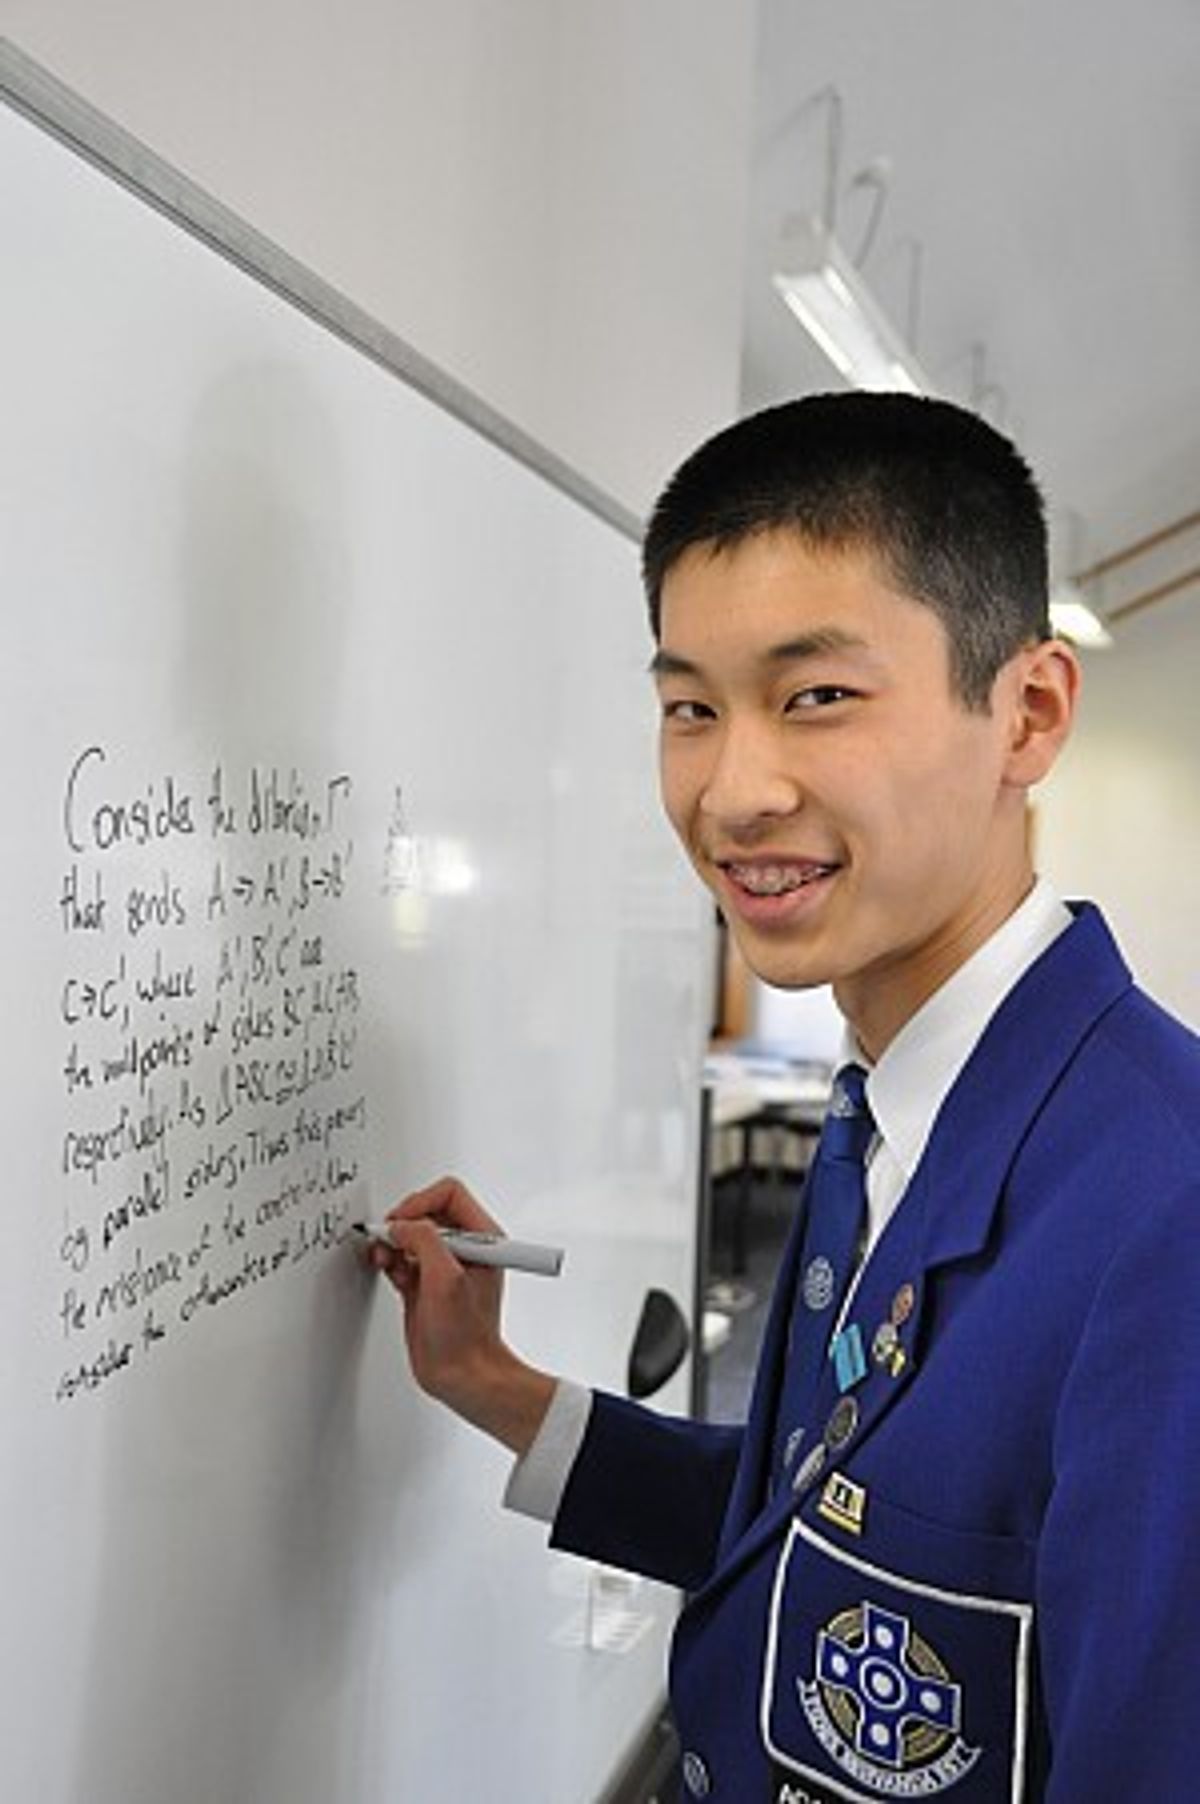 Consider the dilation Γ
that sends A → A', B → B'
C → C', where A', B', C' are
the midpoints of sides BC, AC, AB
respectively. As ΔABC ≅ ΔA'B'C'
by parallel sides. Thus this proves
the existence of the centroid. Now
consider the orthocentre of ΔABC